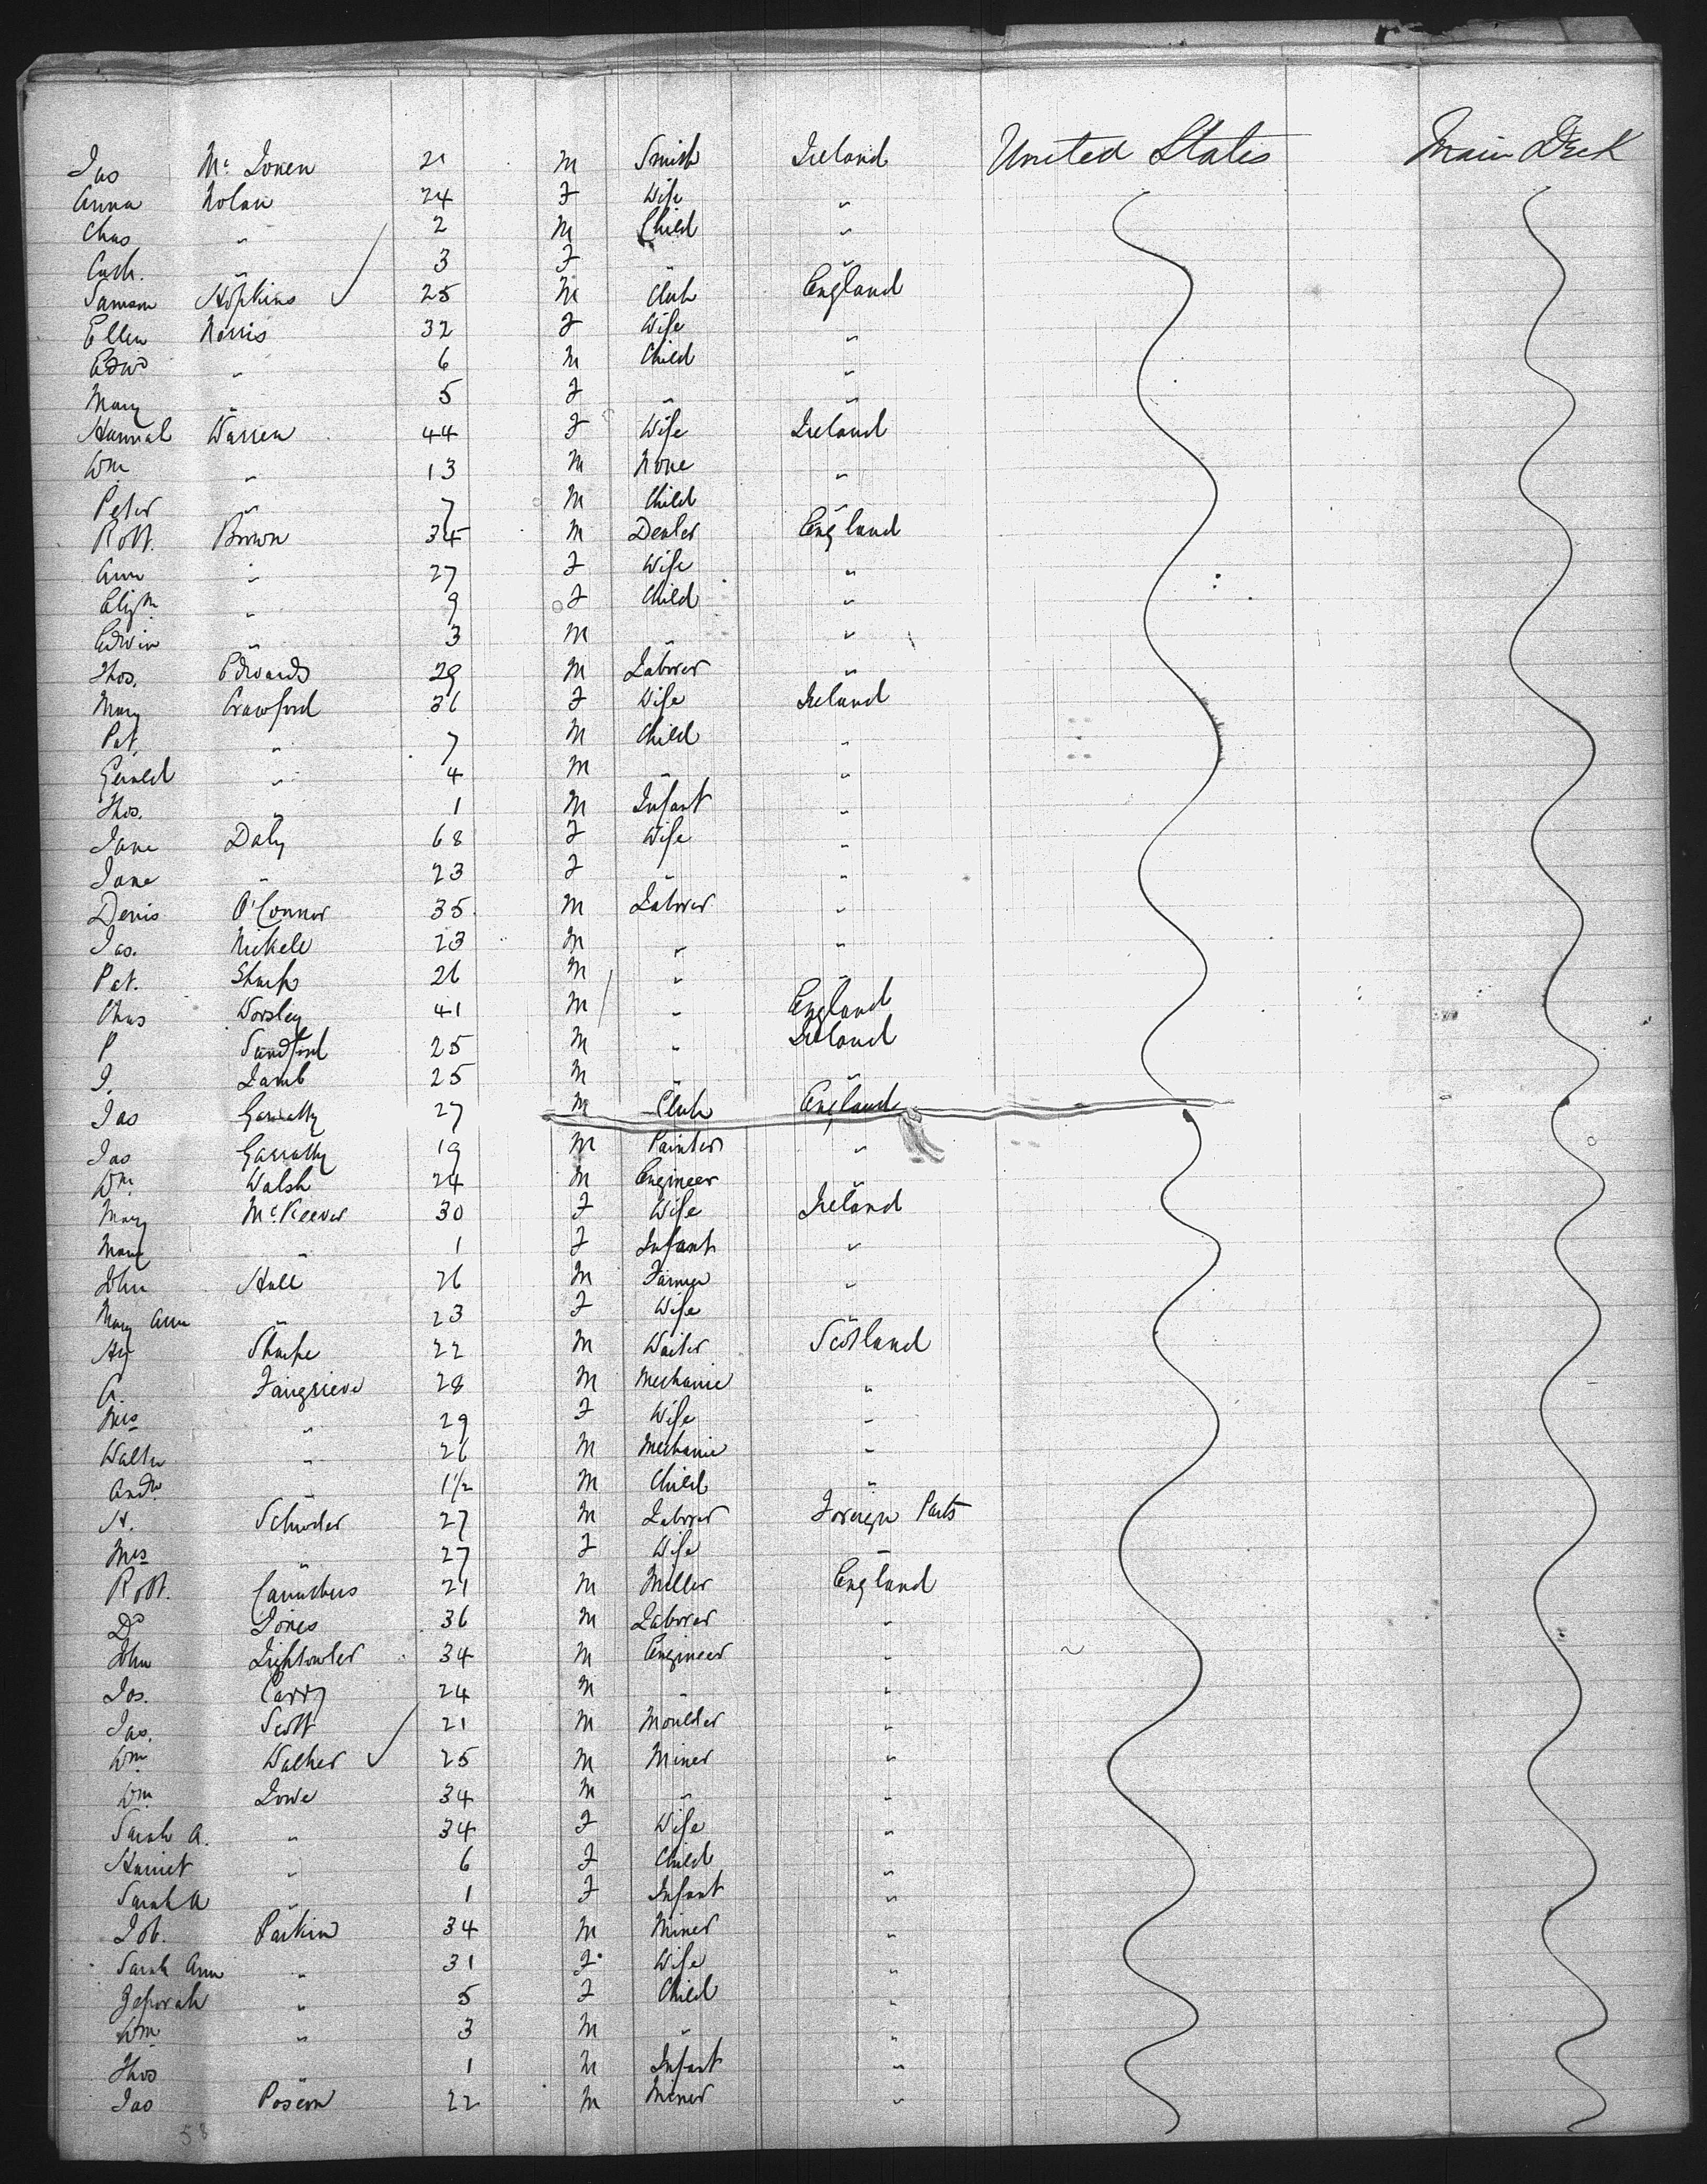 Jas Mc 21 M Smith Ireland United States Main Deck
Anna Nolan 24 F Wife "
Chas " 2 M Child "
Cath. " 3 F " "
Samson Hopkins 25 M Clerk England
Ellen Norris 32 F Wife "
Edwd " 6 M Child "
Mary " 5 F " "
Hannah Warren 44 F Wife Ireland
Wm " 13 M None "
Peter " 7 M Child "
Robt. Brown 34 M Dealer England
Ann " 27 F Wife "
Elizth " 9 F Child "
Edwin " 3 M " "
Thos. Edwards 29 M Laborer "
Mary Crawford 36 F Wife Ireland
Pat. " 7 M Child "
Gerald " 4 M " "
Thos. " 1 M Infant "
Jane Daly 68 F Wife "
Jane " 23 F " "
Denis O'Connor 35 M Laborer "
Jas. Nickell 23 M " "
Pat. Sharp 26 M " "
Chas Worsley 41 M " England
P Sandford 25 M " Ireland
J. Lamb 25 M " "
Jas Garratty 27 M Clerk England
Jas Garratty 19 M Painter "
Wm Walsh 24 M Engineer "
Mary McKeever 30 F Wife Ireland
Mary " 1 F Infant "
John Hall 26 M Farmer "
Mary Ann " 23 F Wife "
Hy Sharpe 22 M Waiter Scotland
A. Fairgrieve 28 M Mechanic "
Mrs " 29 F Wife "
Walter " 26 M Mechanic "
Andw " 1 1/2 M Child "
H. Schroder 27 M Laborer Foreign Parts
Mrs " 27 F Wife "
Robt. Carruthers 21 M Miller England
Dd Jones 36 M Laborer "
John Lightowler 34 M Engineer "
Jos. Carry 24 M " "
Jas. Scott 21 M Moulder "
Wm Walker 25 M Miner "
Wm Lowe 34 M " "
Sarah A. " 34 F Wife "
Harriet " 6 F Child "
Sarah A " 1 F Infant "
Job. Parkin 34 M Miner "
Sarah Ann " 31 F Wife "
Zeporah " 5 F Child "
Wm " 3 M " "
Thos " 1 M Infant "
Jas 22 M Miner "
58